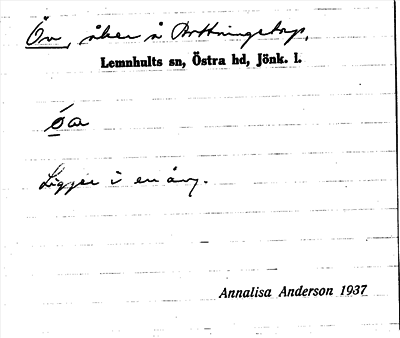 Ön, åker å Drottningstorp,
Lemnhults sn, Östra hd, Jönk. l.
öa
Ligger i en äng.
Annalisa Anderson 1937